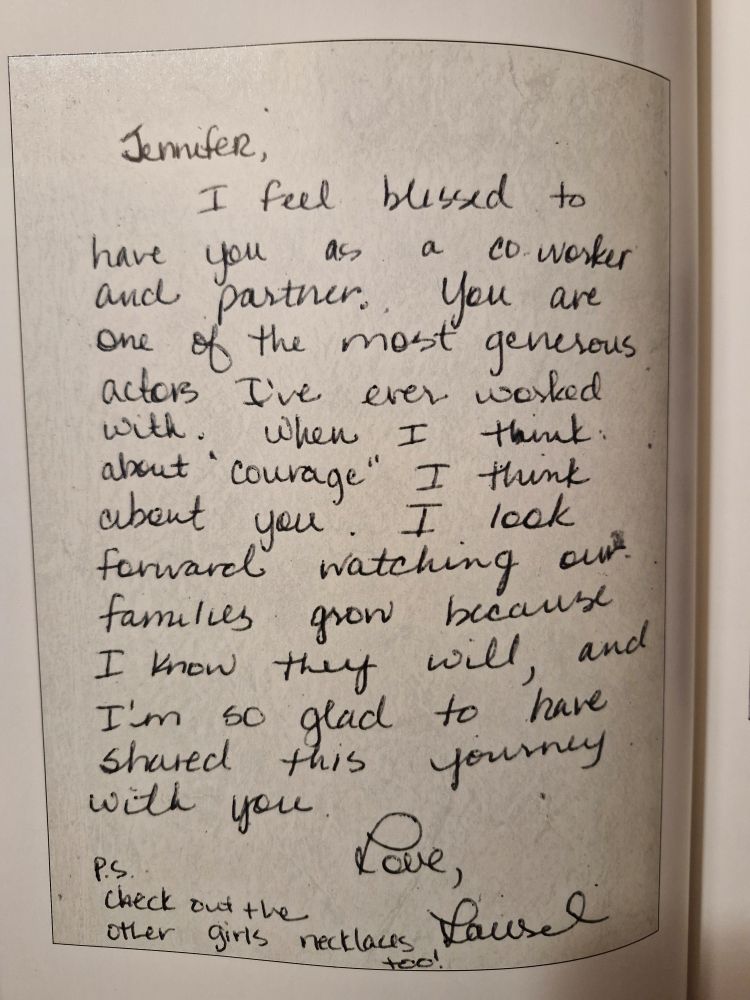 Jennifer,
I feel blessed to
have you as a co-worker
and partner. You are
one of the most generous
actors I've ever worked
with. When I think
about "courage" I think
about you. I look
forward watching our
families grow because
I know they will, and
I'm so glad to have
shared this journey
with you.
Love,
Laurel
P.S.
Check out the
other girls necklaces
too!